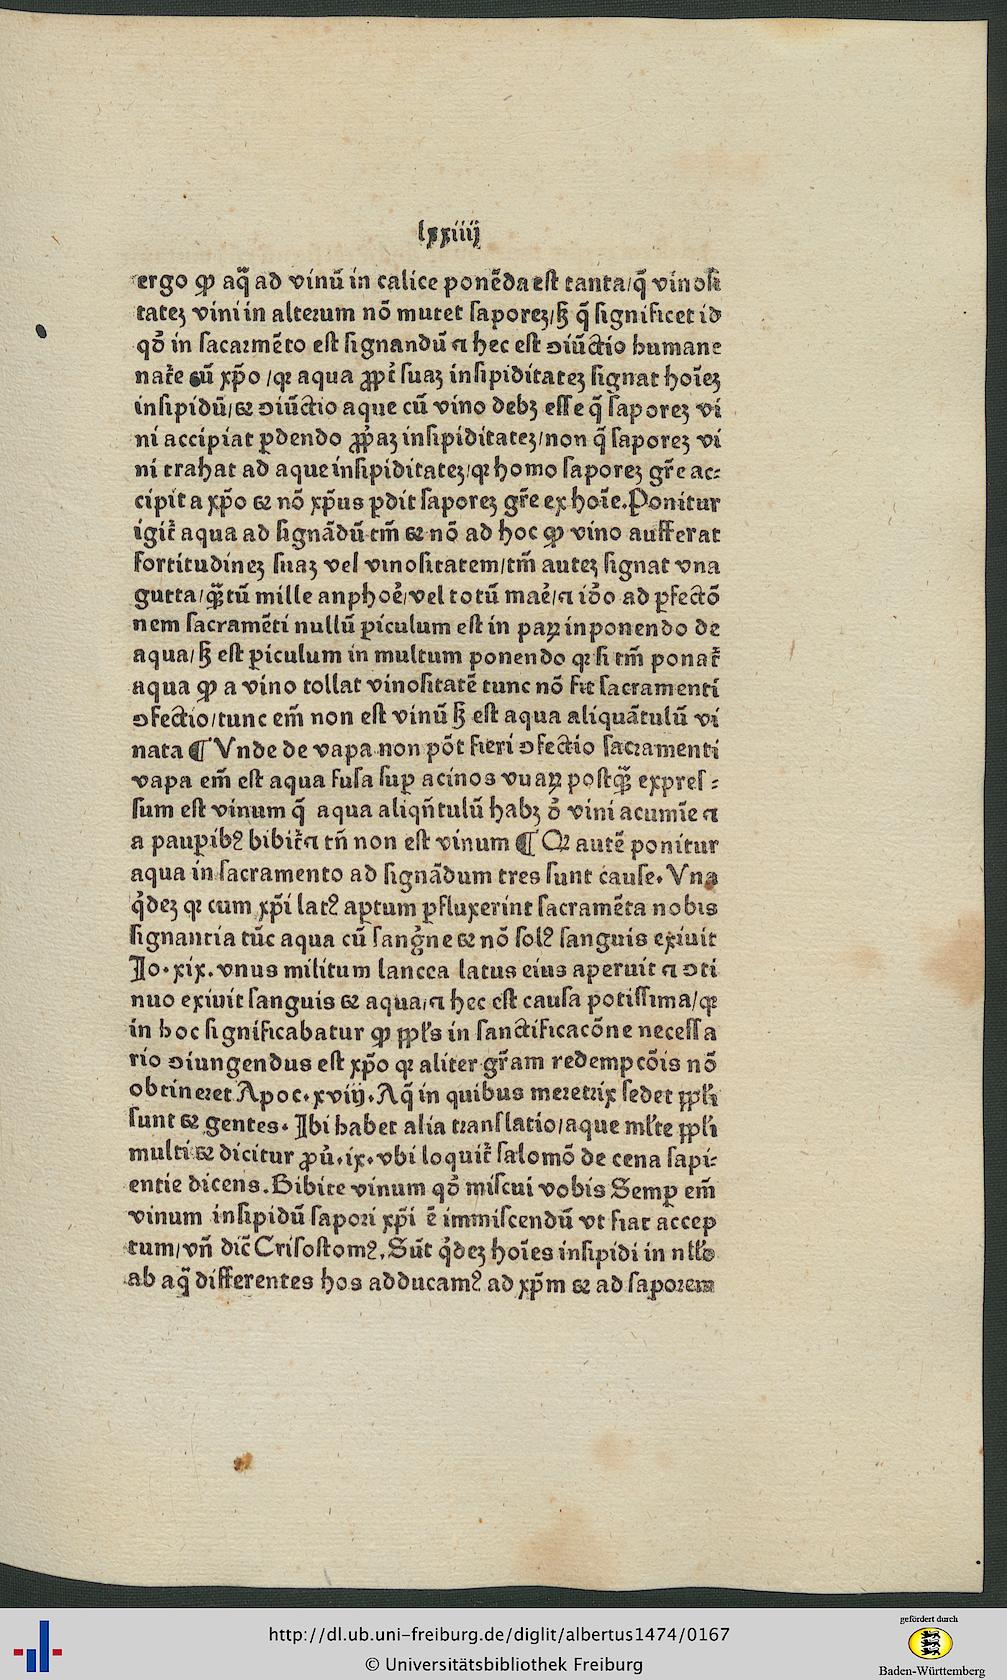 lxxiiij
ergo ꝙ aq̄ ad vinū in calice ponēda est tanta/q̄ vinosi
tatez vini in alterum nō mutet saporez/sꝫ q̄ significet id
qd̄ in sacarmēto est signandū ⁊ hec est ɔiūctio humane
nat᷑e cū xp̄o /qꝛ aqua ꝓp̄t᷑ suaꝫ insipiditatez signat hoīeꝫ
insipidū/⁊ ɔiūctio aque cū vino debꝫ esse q̄ saporeꝫ vi
ni accipiat ꝑdendo ꝓp̄aꝫ insipiditateꝫ/non q̄ saporeꝫ vi
ni trahat ad aque insipiditateꝫ/qꝛ homo saporeꝫ gr̄e ac⸗
cipit a xp̄o ⁊ nō xp̄us ꝑdit saporeꝫ gr̄e ex hoīe. Ponitur
igit᷑ aqua ad signādū tm̄ ⁊ nō ad hoc ꝙ vino aufferat
fortitudineꝫ suaꝫ vel vinositatem/tm̄ auteꝫ signat vna
gutta/qᷓ̄tū mille anphoe᷑/vel totū mae᷑/⁊ id̄o ad ꝑfectō
nem sacramēti nullū piculum est in paꝝ inponendo de
aqua/sꝫ est piculum in multum ponendo qꝛ si tm̄ ponat᷑
aqua ꝙ a vino tollat vinositatē tunc nō fit sacramenti
ɔfectio/tunc em̄ non est vinū sꝫ est aqua aliquātulū vi
nata ¶ Vnde de vapa non pōt fieri ɔfectio sacramenti
vapa em̄ est aqua fusa suꝑ acinos vuaꝝ postqᷓ̄ expres⸗
sum est vinum q̄ aqua aliqn̄tulū habꝫ d̄ vini acumīe ⁊
a pauꝑibꝰ bibit᷑ ⁊ tn̄ non est vinum ¶ Qꝛ autē ponitur
aqua in sacramento ad signādum tres sunt cause. Vna
q̇deꝫ qꝛ cum xp̄i latꝰ aptum ꝑfluxerint sacramēta nobis
signantia tūc aqua cū sanġne ⁊ nō solꝰ sanguis exiuit
Jo. xix. vnus militum lancea latus eius aperuit ⁊ ɔti
nuo exiuit sanguis ⁊ aqua/⁊ hec est causa potissima/qꝛ
in hoc significabatur ꝙ pp̄ls in sanctificacōne necessa
rio ɔiungendus est xp̄o qꝛ aliter gr̄am redempcōis nō
obtineret Apoc. xviij. Aq̄ in quibus meretrix sedet pp̄li
sunt ⁊ gentes. Ibi habet alia translatio/aque ml̄te pp̄li
multi ⁊ dicitur ꝓu᷑. ix. vbi loquit᷑ salomō de cena sapi⸗
entie dicens. Bibite vinum qd̄ miscui vobis Semꝑ em̄
vinum insipidū sapori xp̄i ē immiscendū vt fiat accep
tum/vn̄ dic̄ Crisostomꝰ. Sūt q̇deꝫ hoīes insipidi in nl̄lo
ab aq̄ differentes hos adducamꝰ ad xp̄m ⁊ ad saporem
http://dl.ub.uni-freiburg.de/diglit/albertus1474/0167
© Universitätsbibliothek Freiburg
gefördert durch
Baden-Württemberg